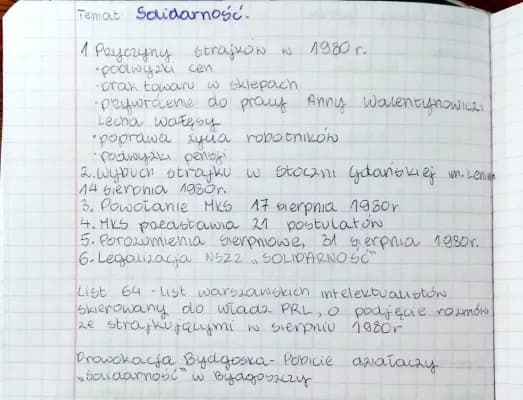 Temat Solidarność.
1 Przyczyny strajków w 1980 r.
• podwyżki cen
• brak towaru w sklepach
• przywrócenie do pracy Anny Walentynowicz i
Lecha Wałęsy
• poprawa życia robotników
• podwyżki pensji
2. Wybuch strajku w Stoczni Gdańskiej im. Lenina
14 sierpnia 1980r.
3. Powołanie MKS 17 sierpnia 1980r
4. MKS przedstawia 21 postulatów
5. Porozumienia sierpniowe, 31 sierpnia 1980r.
6. Legalizacja NSZZ „SOLIDARNOŚĆ"
List 64 - list warszawskich intelektualistów
skierowany do władz PRL, o podjęcie rozmów
ze strajkującymi w sierpniu 1980r
Prowokacja Bydgoska - Pobicie działaczy
„Solidarność" w Bydgoszczy